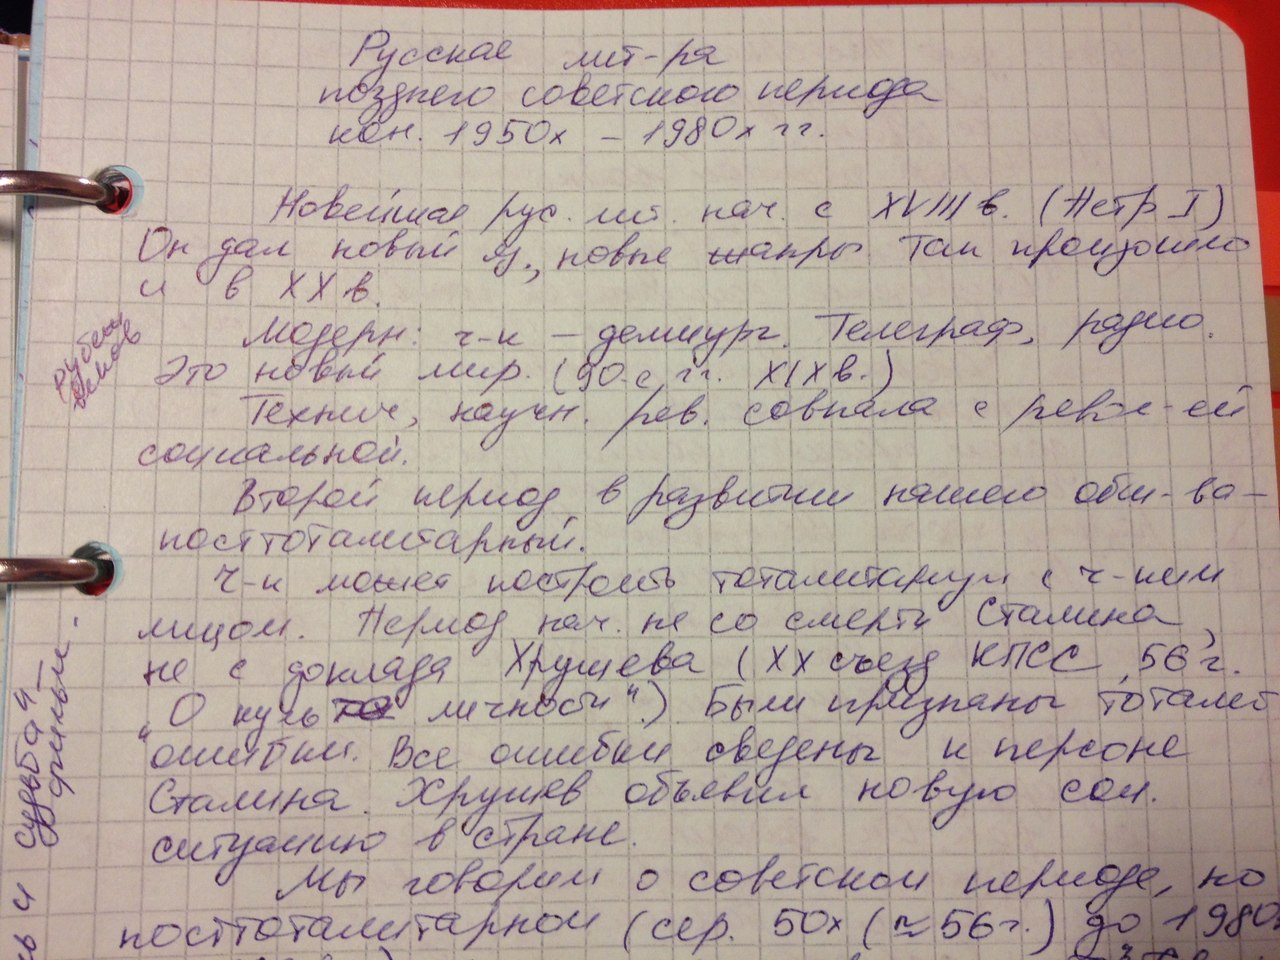 Русская лит-ра
позднего советского периода
кон. 1950х – 1980х гг.
Новейшая рус. лит. нач. с XVIII в. (Петр I)
Он дал новый яз., новые жанры. Так произошло
и в XX в.
рубеж
веков
Модерн: ч-к – демиург. Телеграф, радио.
Это новый мир. (90-е гг. XIX в.)
Технич., научн. рев. совпала с рев-ей
социальной.
Второй период в развитии нашего общ-ва –
посттоталитарный.
Ч-к может построить тоталитаризм с ч-ким
лицом. Период нач. не со смерти Сталина,
не с доклада Хрущева (XX съезд КПСС, 56 г.
"О культе личности".) Были признаны тоталит
"ошибки. Все ошибки сведены к персоне
Сталина. Хрущев объявил новую соц.
ситуацию в стране.
Мы говорим о советском периоде, но
посттоталитарном (сер. 50х (≈56г.) до 1980х
ь и судьба ч-